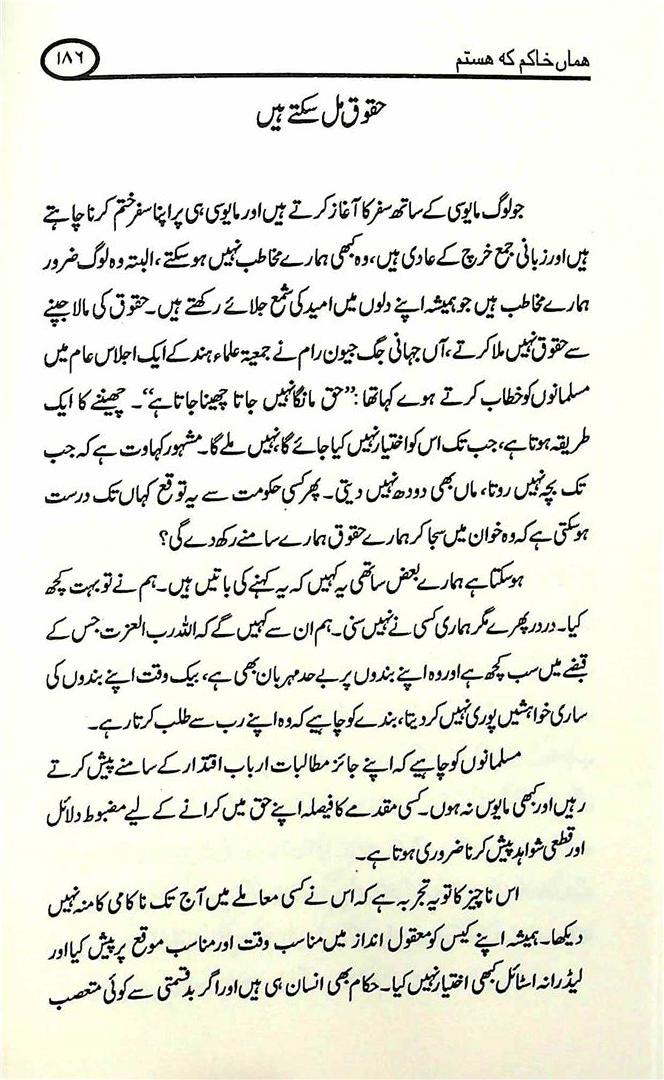 ہماں خاکم کہ ہستم
۱۸۶
حقوق مل سکتے ہیں
جو لوگ مایوسی کے ساتھ سفر کا آغاز کرتے ہیں اور مایوسی ہی پر اپنا سفر ختم کرنا چاہتے
ہیں اور زبانی جمع خرچ کے عادی ہیں، وہ کبھی ہمارے مخاطب نہیں ہو سکتے، البتہ وہ لوگ ضرور
ہمارے مخاطب ہیں جو ہمیشہ اپنے دلوں میں امید کی شمع جلائے رکھتے ہیں۔ حقوق کی مالا جپنے
سے حقوق نہیں ملا کرتے، آں جہانی جگ جیون رام نے جمعیۃ علماء ہند کے ایک اجلاس عام میں
مسلمانوں کو خطاب کرتے ہوے کہا تھا: ”حق مانگا نہیں جاتا چھینا جاتا ہے“۔ چھیننے کا ایک
طریقہ ہوتا ہے، جب تک اس کو اختیار نہیں کیا جائے گا، نہیں ملے گا۔ مشہور کہاوت ہے کہ جب
تک بچہ نہیں روتا، ماں بھی دودھ نہیں دیتی۔ پھر کسی حکومت سے یہ توقع کہاں تک درست
ہو سکتی ہے کہ وہ خوان میں سجا کر ہمارے حقوق ہمارے سامنے رکھ دے گی؟
ہو سکتا ہے ہمارے بعض ساتھی یہ کہیں کہ یہ کہنے کی باتیں ہیں۔ ہم نے تو بہت کچھ
کیا۔ در در پھرے مگر ہماری کسی نے نہیں سنی۔ ہم ان سے کہیں گے کہ اللہ رب العزت جس کے
قبضے میں سب کچھ ہے اور وہ اپنے بندوں پر بے حد مہربان بھی ہے، بیک وقت اپنے بندوں کی
ساری خواہشیں پوری نہیں کر دیتا، بندے کو چاہیے کہ وہ اپنے رب سے طلب کرتا رہے۔
مسلمانوں کو چاہیے کہ اپنے جائز مطالبات ارباب اقتدار کے سامنے پیش کرتے
رہیں اور کبھی مایوس نہ ہوں۔ کسی مقدمے کا فیصلہ اپنے حق میں کرانے کے لیے مضبوط دلائل
اور قطعی شواہد پیش کرنا ضروری ہوتا ہے۔
اس ناچیز کا تو یہ تجربہ ہے کہ اس نے کسی معاملے میں آج تک ناکامی کا منہ نہیں
دیکھا۔ ہمیشہ اپنے کیس کو معقول انداز میں مناسب وقت اور مناسب موقع پر پیش کیا اور
لیڈرانہ اسٹائل کبھی اختیار نہیں کیا۔ حکام بھی انسان ہی ہیں اور اگر بدقسمتی سے کوئی متعصب